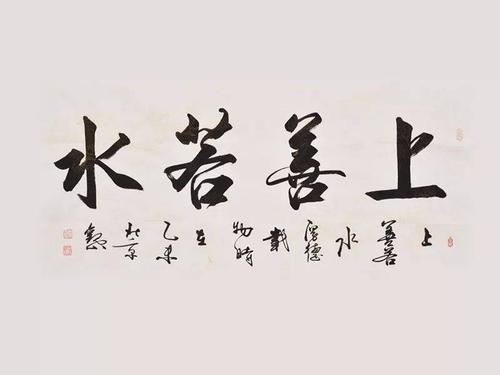 上善若水
上善若水厚德載物時在乙未於京